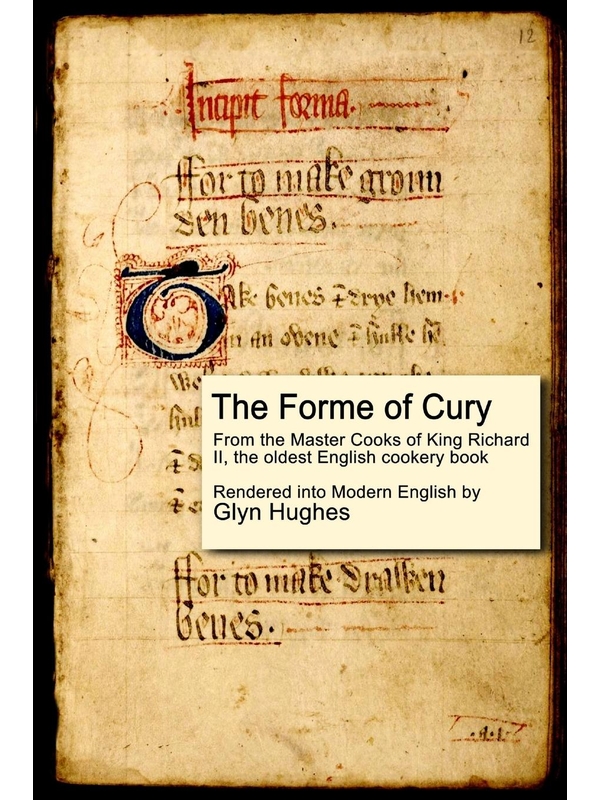 12
Incipit forma.
ffor to make groun
den benes.
Take benes & drye hem
in an ovene & hulle
The Forme of Cury
From the Master Cooks of King Richard
II, the oldest English cookery book
Rendered into Modern English by
Glyn Hughes
ffor to make drawen
benes.